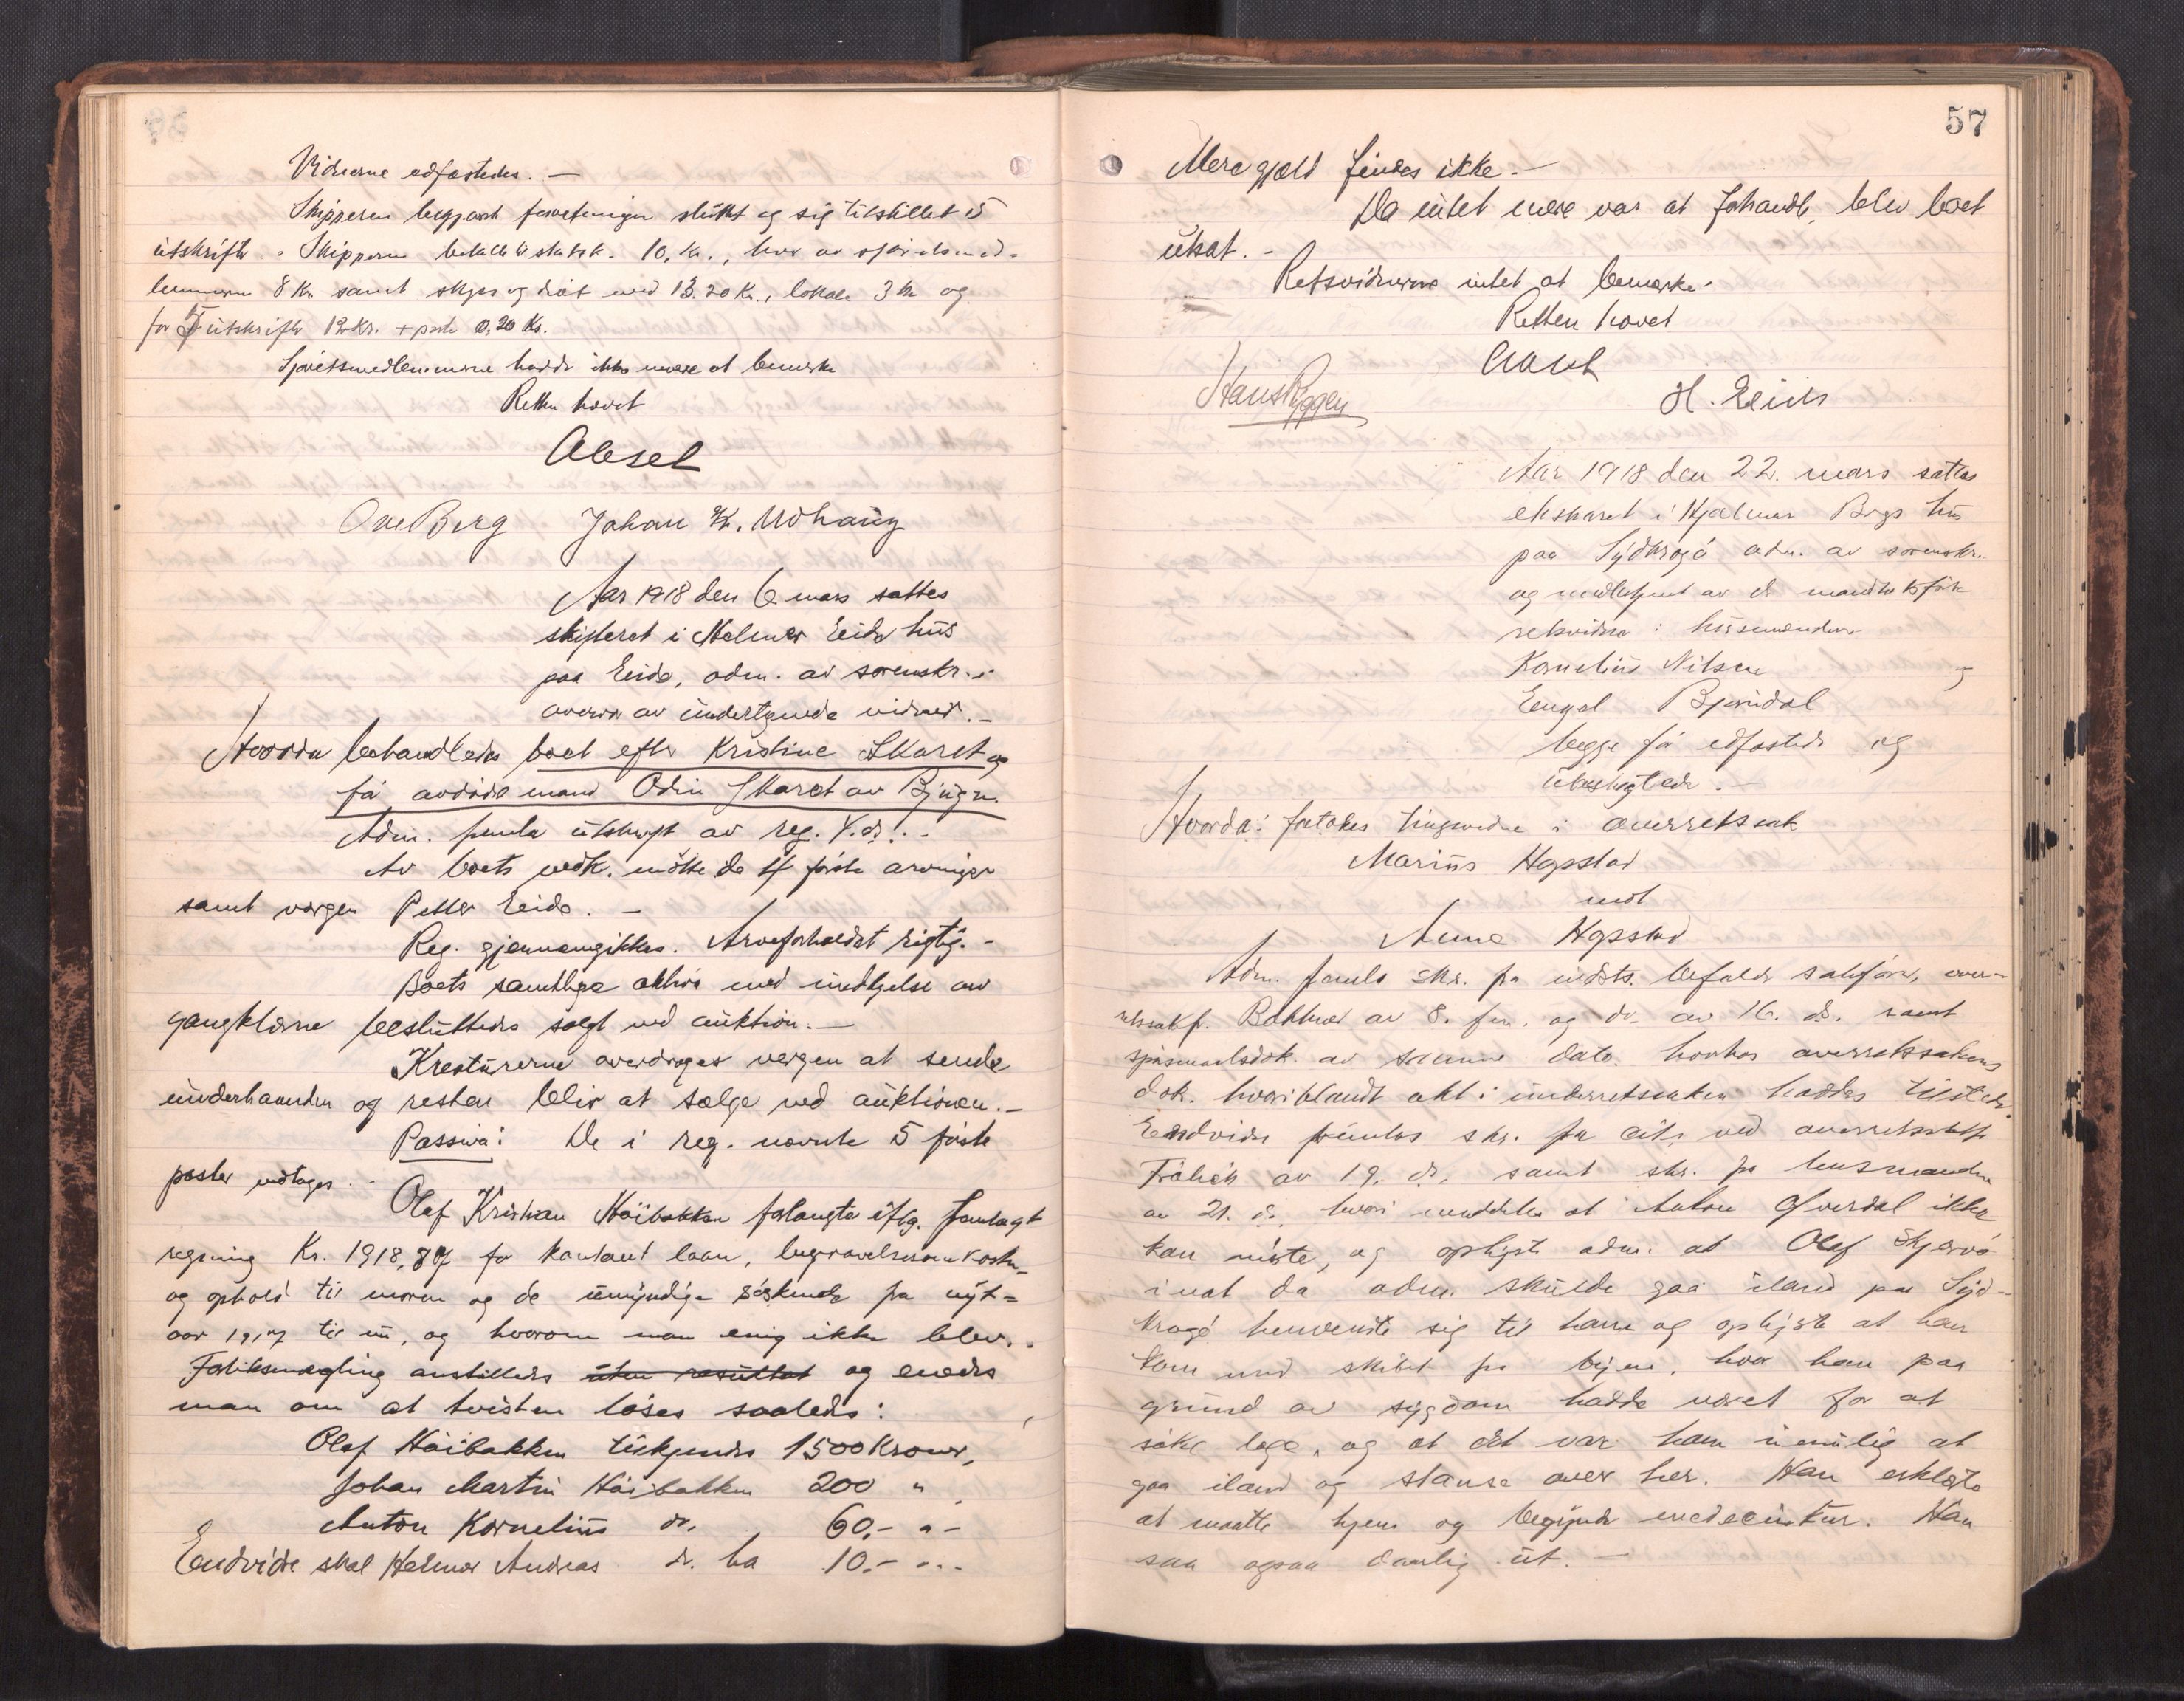 Vidnerne edfæstedes. —
Skipperen begjært forretningen sluttet og sig tilstillet 5
utskrifter. - Skipperen betalte til statsk. 10, Kr., hvor av sjøretsmed-
lemmerne 8 Kr. samt skyss og diæt med 13.20 Kr., lokale 3 Kr og
for 5 utskrifter 12 Kr. + porto 0,20 Kr.
Sjøretsmedlemmerne hadde ikke mere at bemerke
Retten hævet
Ove Berg Johan Kr. Udhaug
Aar 1918 den 6 mars sattes
skifteret i Helmer Eide hus
paa Eide, adm. av sorenskr. i
overvær av undertegnede vidner. -
Hvorda behandledes boet efter Kristine Skaret og
før avdøde mand Odin Skaret av Bjugn.
Adm. fremla utskrift av reg. 4. ds. -
Av boets vedk. møtte de 4 første arvinger
samt vergen Petter Eide. —
Reg. gjennemgikkes. Arveforholdet rigtig. -
Boets samtlige aktiva med undtagelse av
gangklærne besluttedes solgt ved auktion. —
Kreaturerne overdrages vergen at sende
underhaanden og resten blir at sælge ved auktionen. -
Passiva: De i reg. nævnte 5 første
poster vedtages. -
Olaf Kristian Høibakken forlangte iflg. fremlagt
regning Kr. 1918,87 for kontant laan, begravelsesomkostn.
og ophold til moren og de umyndige søskende fra nyt-
aar 1917 til nu, og hvorom man enig ikke blev. -
Forliksmægling anstilledes uten resultat og enedes
man om at tvisten løses saaledes:
Olaf Høibakken tilkjendes 1500 Kroner,
Johan Martin Høibakken 200 "
Anton Kornelius do. 60.- " -
Endvidre skal Helmer Andreas do. ha 10.- " -
57
Mere gjæld findes ikke. —
Da intet mere var at forhandle, blev boet
utsat. -
Retsvidnerne intet at bemerke.
Retten hævet
Hans Ryggen H. Eide
Aar 1918 den 22. mars sattes
ekstraret i Hjalmar Bergs hus
paa Sydkrogø adm. av sorenskr.
og medbetjent av de mandtalsførte
retsvidner: husmændene
Kornelius Nilsen og
Engel Bjørndal
begge før edfæstede og
ubeslegtede. -
Hvorda: foretokes tingsvidne i overretssak
Marius Hopstad
mot
Anna Hopstad
Adm. fremla skr. fra indsts. befalede sakfører, over-
retssakf. Bakker av 8. fm. og do. av 16. ds. samt
spørsmaalsdok. av samme dato. hvorhos overretssakens
dok. hvoriblandt akt i underretssaken haddes tilstede.
Endvidre fremlas skr. fra cit. ved overretssakf.
av 19. ds., samt skr. fra lensmanden
av 21. ds. hvori meddeles at Anton Overdal ikke
kan møte, og oplyste adm. at Olaf Skjervø
inat da adm. skulde gaa iland paa Syd-
krogø henvendte sig til ham og oplyste at han
kom med skibet fra byen, hvor han paa
grund av sygdom hadde været for at
søke læge, og at det var ham umulig at
gaa iland og stanse over her. Han erklærte
at maatte hjem og begynde medecinkur. Han
saa ogsaa daarlig ut. —